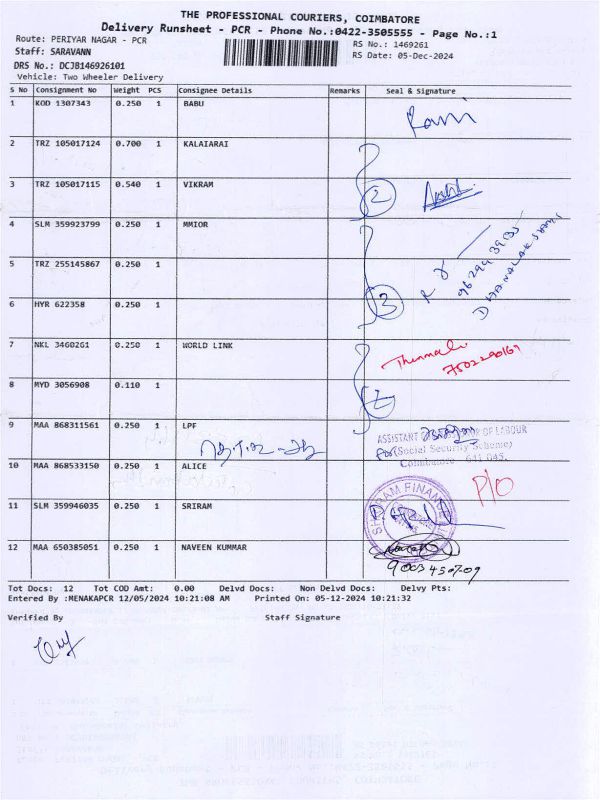 THE PROFESSIONAL COURIERS, COIMBATORE
Delivery Runsheet - PCR - Phone No.:0422-3505555 - Page No.:1
Route: PERIYAR NAGAR - PCR
RS No.: 1469261
Staff: SARAVANN
RS Date: 05-Dec-2024
DRS No.: DCJ8146926101
Vehicle: Two Wheeler Delivery
S No Consignment No Weight PCS Consignee Details Remarks Seal & Signature
1 KOD 1307343 0.250 1 BABU
Rani
2 TRZ 105017124 0.700 1 KALAIARAI
3 TRZ 105017115 0.540 1 VIKRAM
2
4 SLM 359923799 0.250 1 MMIOR
5 TRZ 255145867 0.250 1
6 HYR 622358 0.250 1
3
DHANALAKSHMI
7 NKL 3460261 0.250 1 WORLD LINK
7502290167
8 MYD 3056908 0.110 1
2
9 MAA 868311561 0.250 1 LPF
ASSISTANT OF LABOUR
(Social Security Scheme)
Coimbatore 641 045.
10 MAA 868533150 0.250 1 ALICE
P/O
11 SLM 359946035 0.250 1 SRIRAM
SHRIRAM FINANCE
12 MAA 650385051 0.250 1 NAVEEN KUMMAR
Tot Docs: 12 Tot COD Amt: 0.00 Delvd Docs: Non Delvd Docs: Delvy Pts:
Entered By :MENAKAPCR 12/05/2024 10:21:08 AM Printed On: 05-12-2024 10:21:32
Verified By Staff Signature